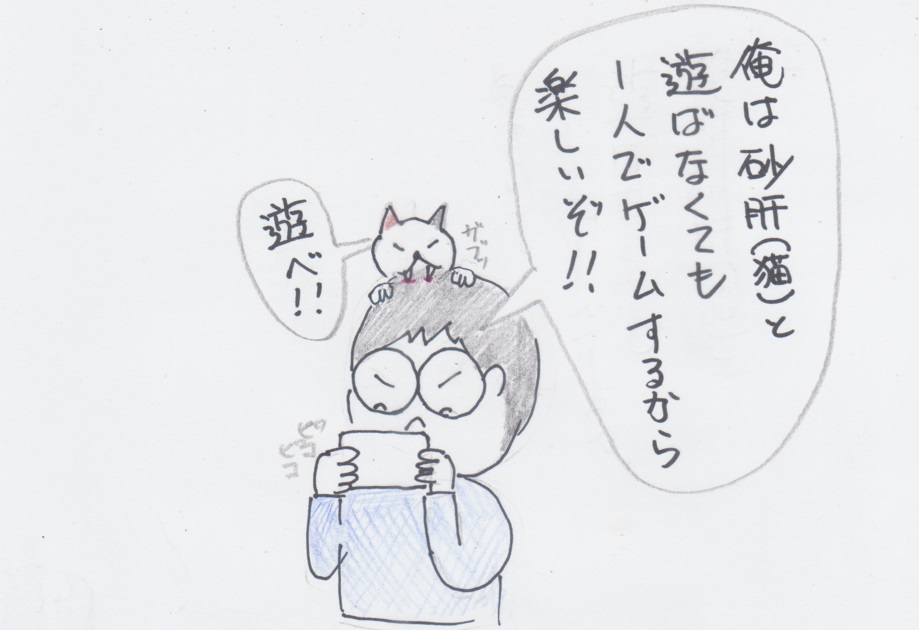 俺は砂肝(猫)と
遊ばなくても
1人でゲームするから
楽しいぞ!!
遊べ!!
ガブッ
ピコ
ピコ